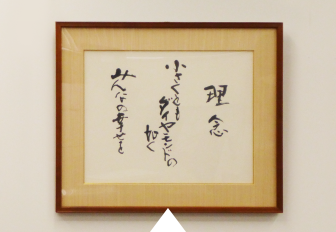 理念
小さくとも
ダイヤモンドの
如く
みんなの幸せを